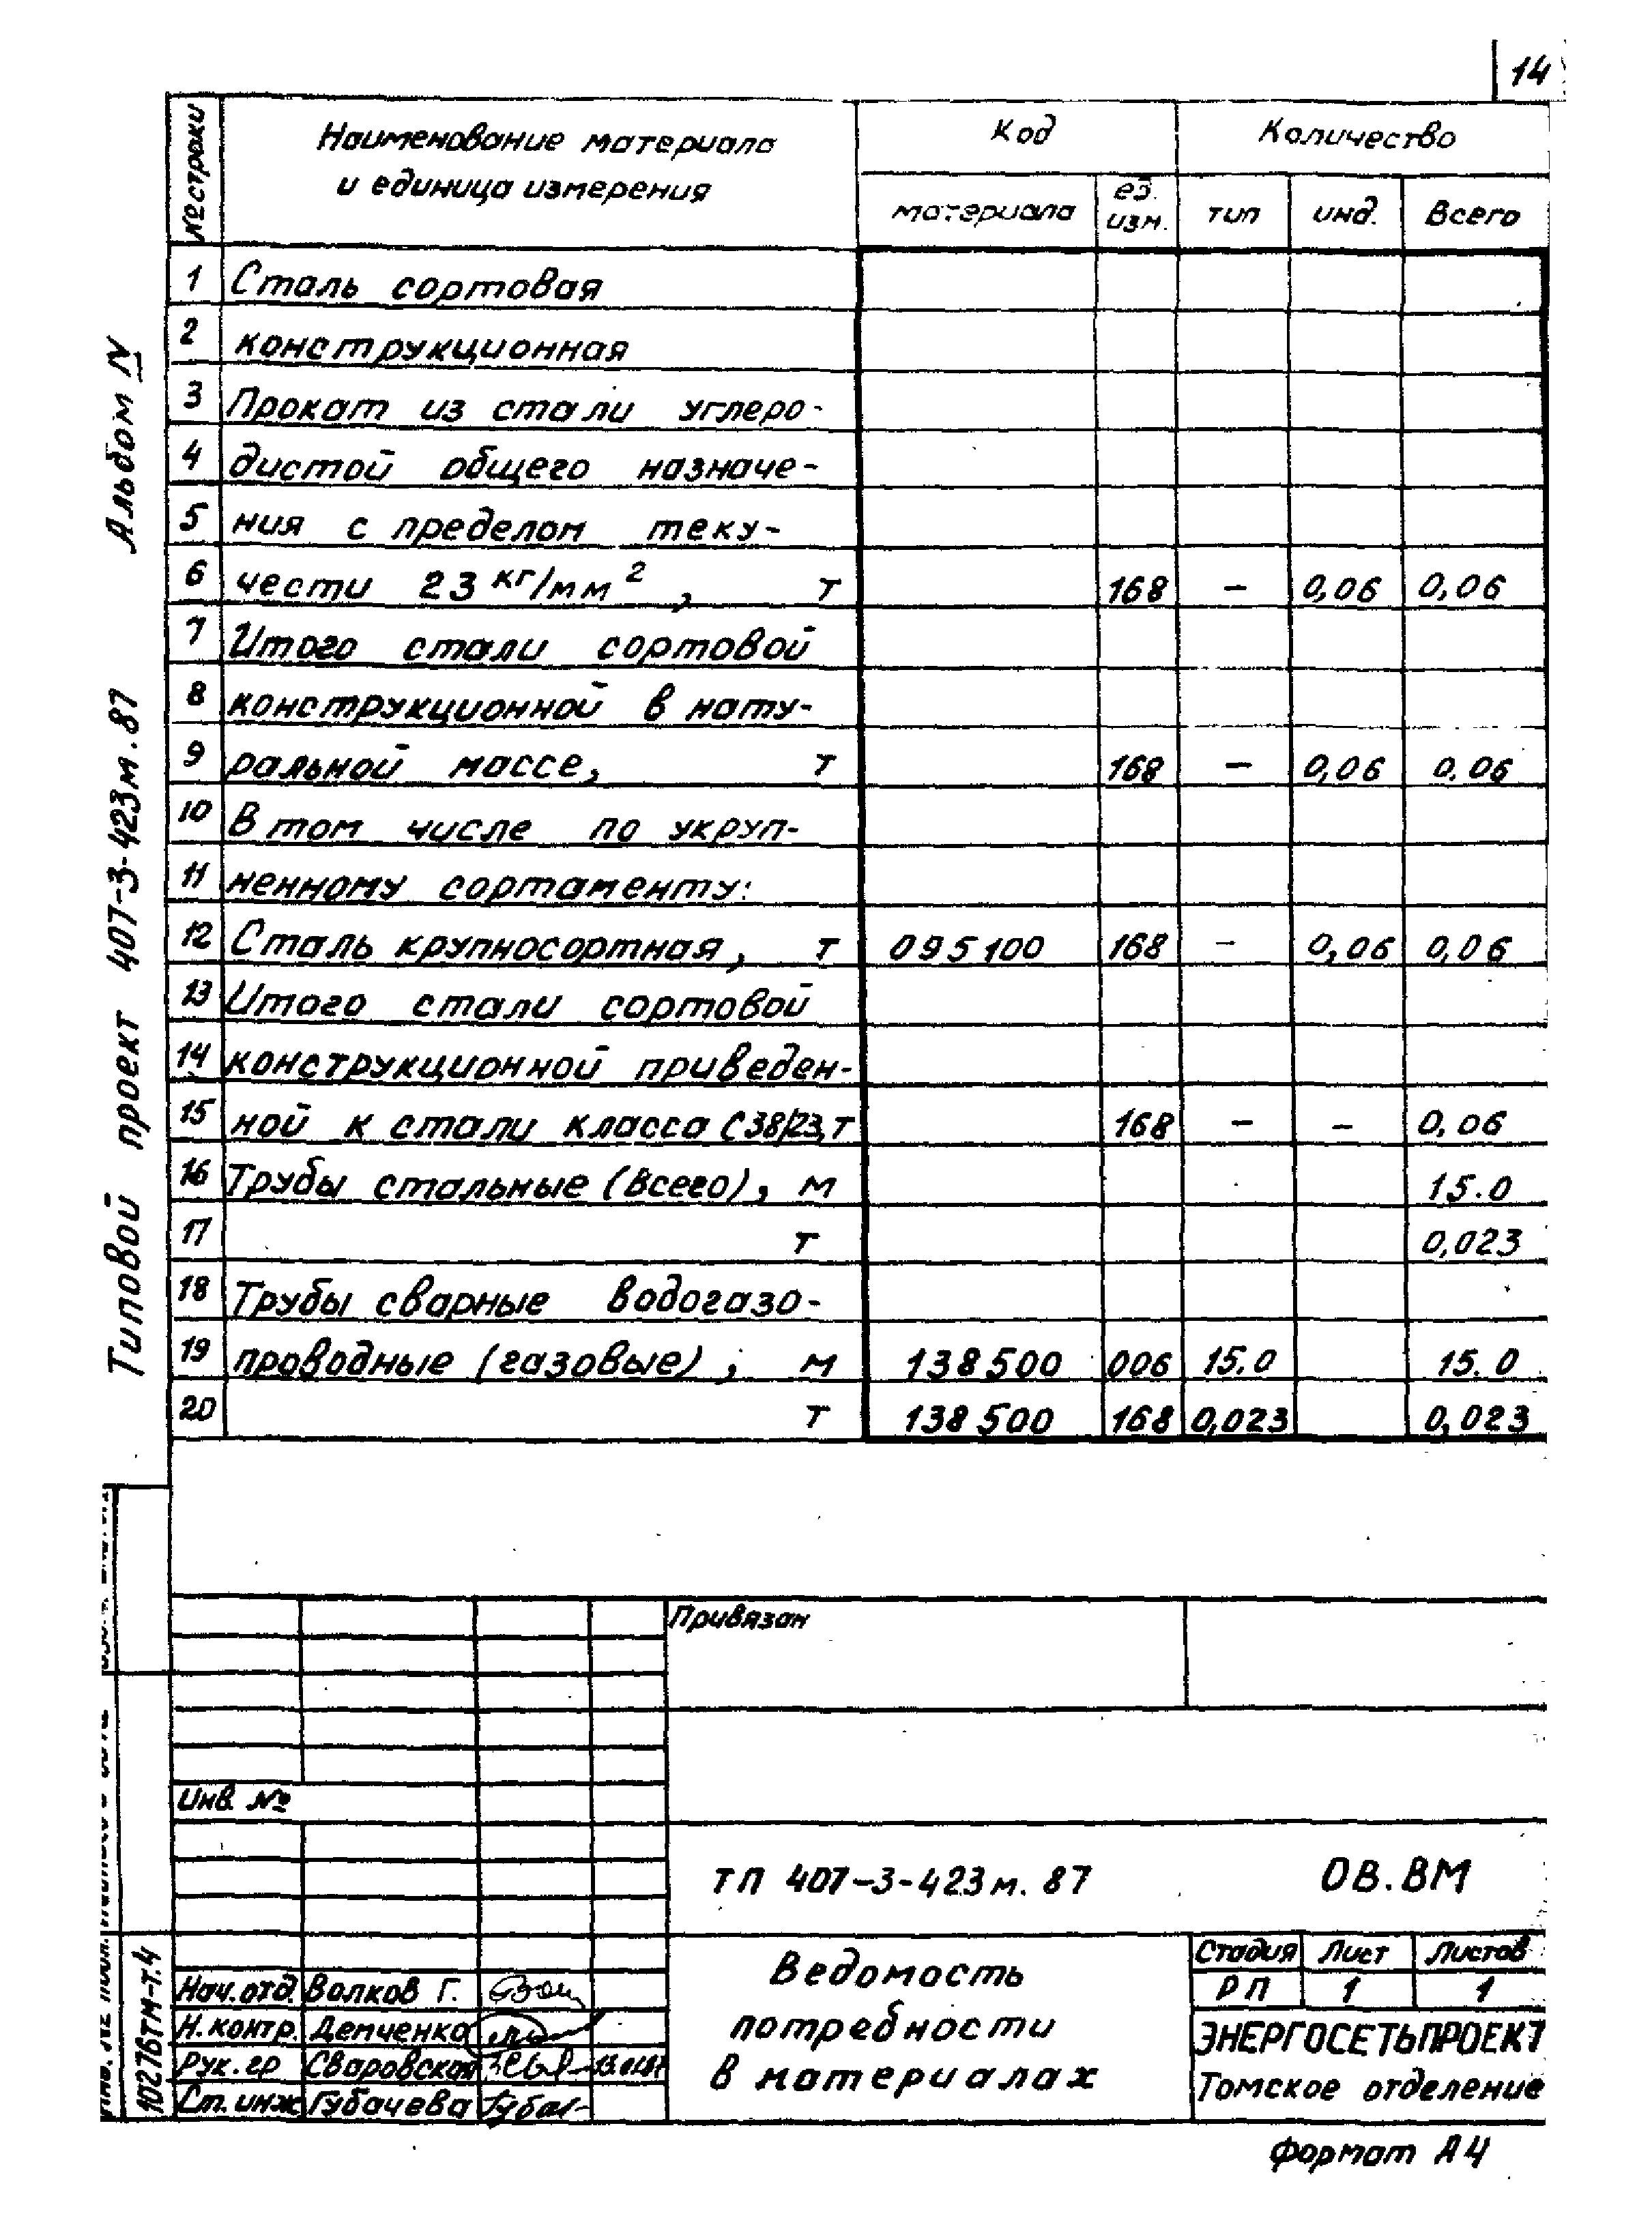 14
№ строки Наименование материала и единица измерения Код Количество
материала ед. изм. тип инд. Всего
1 Сталь сортовая
2 конструкционная
3 Прокат из стали углеро-
4 дистой общего назначе-
5 ния с пределом теку-
6 чести 23 кг/мм², т 168 – 0,06 0,06
7 Итого стали сортовой
8 конструкционной в нату-
9 ральной массе, т 168 – 0,06 0,06
10 В том числе по укруп-
11 ненному сортаменту:
12 Сталь крупносортная, т 095100 168 – 0,06 0,06
13 Итого стали сортовой
14 конструкционной приведен-
15 ной к стали класса С38/23, т 168 – – 0,06
16 Трубы стальные (всего), м 15.0
17 т 0,023
18 Трубы сварные водогазо-
19 проводные (газовые), м 138500 006 15.0 15.0
20 т 138500 168 0,023 0,023
Типовой проект 407-3-423м.87 Альбом IV
Привязан
Инв. №
ТП 407-3-423м.87 ОВ.ВМ
Ведомость
потребности
в материалах
Стадия Лист Листов
РП 1 1
ЭНЕРГОСЕТЬПРОЕКТ
Томское отделение
Нач.отд. Волков Г.
Н.контр. Демченко
Рук.гр Сваровская
Ст.инж Губачева
10276тм-т.4
Формат А4